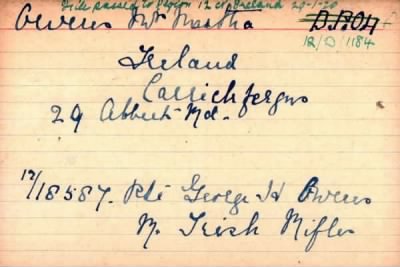 File passed to Region 12 of Ireland 29-1-20
Owens Mrs Martha
12/D/1184
Ireland
Carrickfergus
29 Abbots Rd.
12/18587. Pte George H Owens
R. Irish Rifles